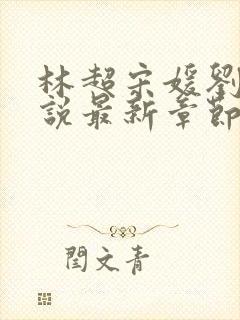 林超宋媛劉
說最新章節
閆文青